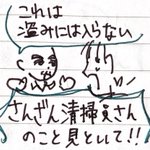 これは
盗みには入らない
さんざん清掃員さん
のこと見といて!!